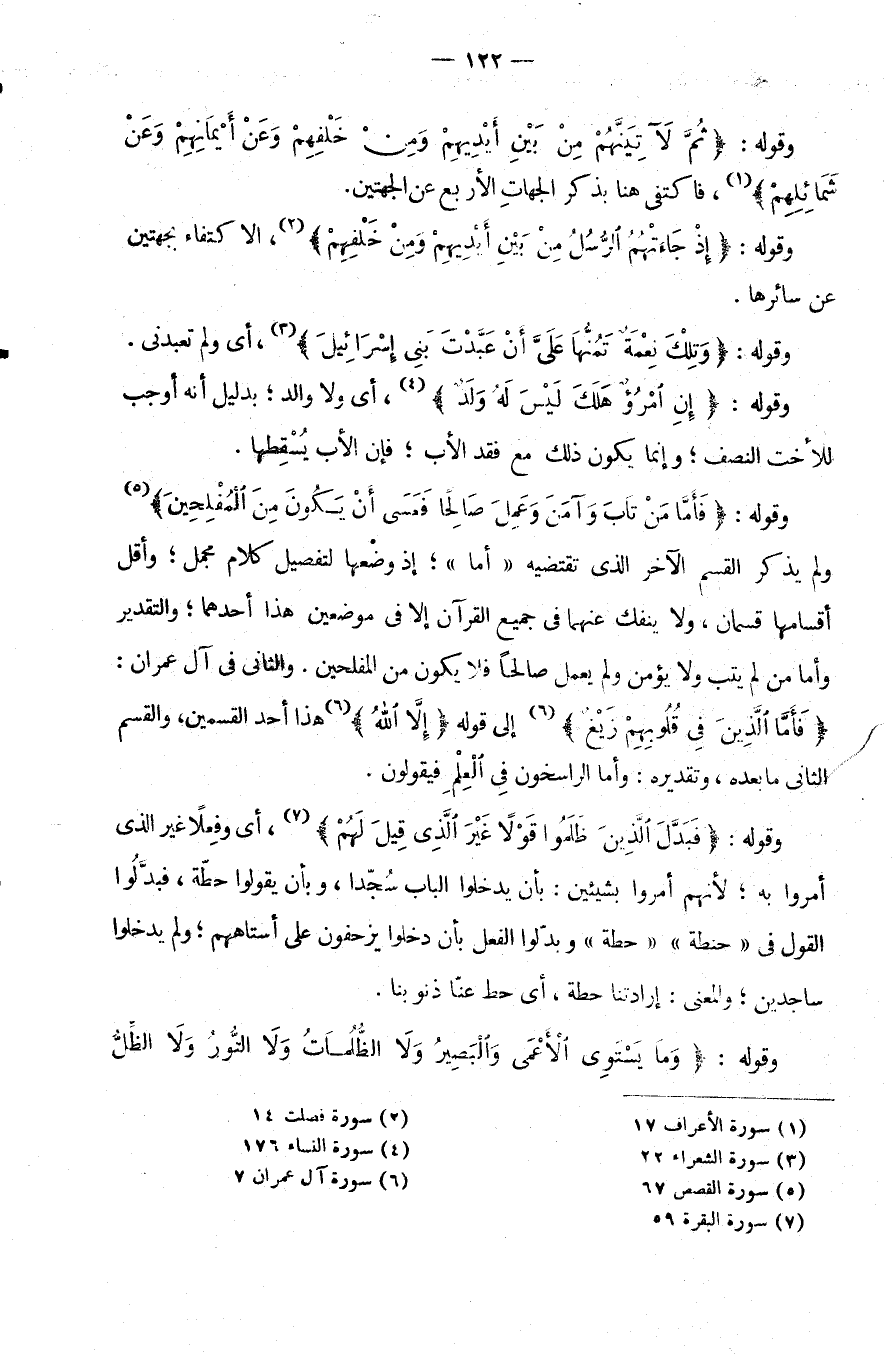 — ١٢٢ —
وقوله : ﴿ ثُمَّ لَآتِيَنَّهُمْ مِنْ بَيْنِ أَيْدِيهِمْ وَمِنْ خَلْفِهِمْ وَعَنْ أَيْمَانِهِمْ وَعَنْ
شَمَائِلِهِمْ ﴾(١) ، فاكتفى هنا بذكر الجهات الأربع عن الجهتين.
وقوله : ﴿ إِذْ جَاءَتْهُمُ الرُّسُلُ مِنْ بَيْنِ أَيْدِيهِمْ وَمِنْ خَلْفِهِمْ ﴾(٢)، الاكتفاء بجهتين
عن سائرها .
وقوله : ﴿ وَتِلْكَ نِعْمَةٌ تَمُنُّهَا عَلَىَّ أَنْ عَبَّدْتَ بَنِي إِسْرَائِيلَ ﴾(٣) ، أى ولم تعبدنى .
وقوله : ﴿ إِنِ امْرُؤٌ هَلَكَ لَيْسَ لَهُ وَلَدٌ ﴾(٤) ، أى ولا والد ؛ بدليل أنه أوجب
للأخت النصف ؛ وإنما يكون ذلك مع فقد الأب ؛ فإن الأب يُسْقِطها .
وقوله : ﴿ فَأَمَّا مَنْ تَابَ وَآمَنَ وَعَمِلَ صَالِحًا فَعَسَى أَنْ يَكُونَ مِنَ الْمُفْلِحِينَ ﴾(٥)
ولم يذكر القسم الآخر الذى تقتضيه « أما » ؛ إذ وضْعها لتفصيل كلام مجمل ؛ وأقل
أقسامها قسمان ، ولا ينفك عنهما فى جميع القرآن إلا فى موضعين هذا أحدهما ؛ والتقدير
وأما من لم يتب ولا يؤمن ولم يعمل صالحاً فلا يكون من المفلحين . والثانى فى آل عمران :
﴿ فَأَمَّا الَّذِينَ فِي قُلُوبِهِمْ زَيْغٌ ﴾(٦) إلى قوله ﴿ إِلَّا اللهُ ﴾(٦)هذا أحد القسمين، والقسم
الثانى مابعده ، وتقديره : وأما الراسخون فِي الْعِلْمِ فيقولون .
وقوله : ﴿ فَبَدَّلَ الَّذِينَ ظَلَمُوا قَوْلًا غَيْرَ الَّذِى قِيلَ لَهُمْ ﴾(٧) ، أى وفِعلًا غير الذى
أمروا به ؛ لأنهم أمروا بشيئين : بأن يدخلوا الباب سُجّدا ، وبأن يقولوا حطّة ، فبدَّلُوا
القول فى « حنطة » « حطة » وبدّلوا الفعل بأن دخلوا يزحفون على أستاههم ؛ ولم يدخلوا
ساجدين ؛ والمعنى : إرادتنا حطة ، أى حط عنّا ذنوبنا .
وقوله : ﴿ وَمَا يَسْتَوِى الْأَعْمَى وَالْبَصِيرُ وَلَا الظُّلُمَاتُ وَلَا النُّورُ وَلَا الظِّلُّ
(١) سورة الأعراف ١٧
(٢) سورة فصلت ١٤
(٣) سورة الشعراء ٢٢
(٤) سورة النساء ١٧٦
(٥) سورة القصص ٦٧
(٦) سورة آل عمران ٧
(٧) سورة البقرة ٥٩